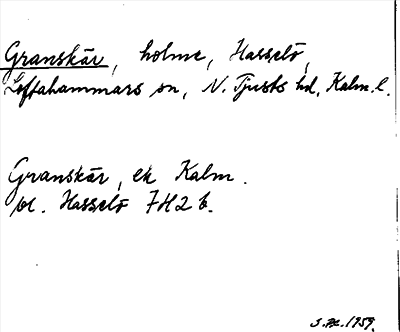 Granskär, holme, Hasselö,
Loftahammars sn, N. Tjusts hd, Kalm. l.
Granskär, ek Kalm.
bl. Hasselö 7H2b.
1959.